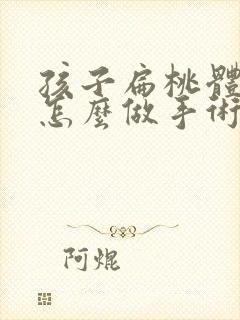 孩子扁桃體
怎麼做手術
阿焜